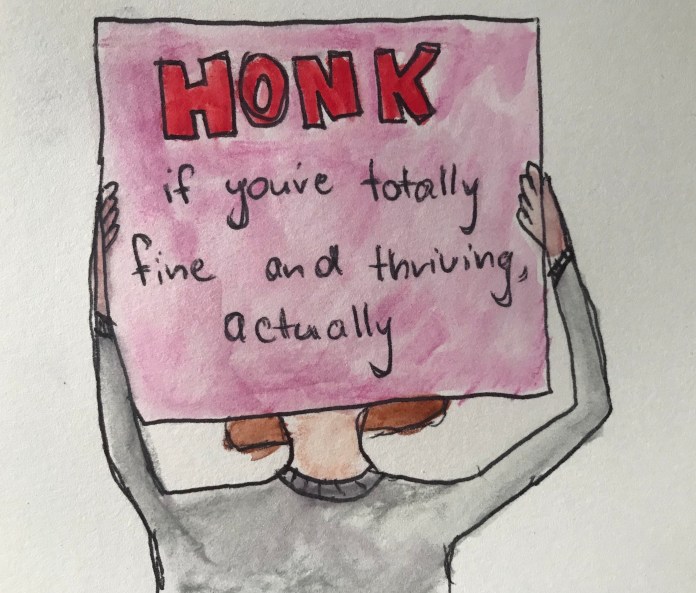 HONK
if you're totally
fine and thriving,
actually